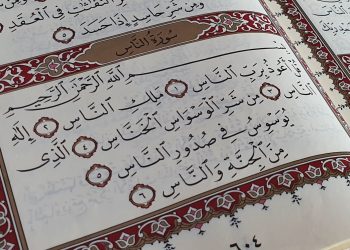 النَّفَّاثَاتِ فِي الْعُقَدِ
وَمِن شَرِّ حَاسِدٍ إِذَا حَسَدَ ٥
سُورَةُ النَّاسِ
بِسْمِ اللَّهِ الرَّحْمَٰنِ الرَّحِيمِ
قُلْ أَعُوذُ بِرَبِّ النَّاسِ ١ مَلِكِ النَّاسِ ٢ إِلَٰهِ
النَّاسِ ٣ مِن شَرِّ الْوَسْوَاسِ الْخَنَّاسِ ٤ الَّذِي
يُوَسْوِسُ فِي صُدُورِ النَّاسِ ٥
مِنَ الْجِنَّةِ وَالنَّاسِ ٦
٦٠٤